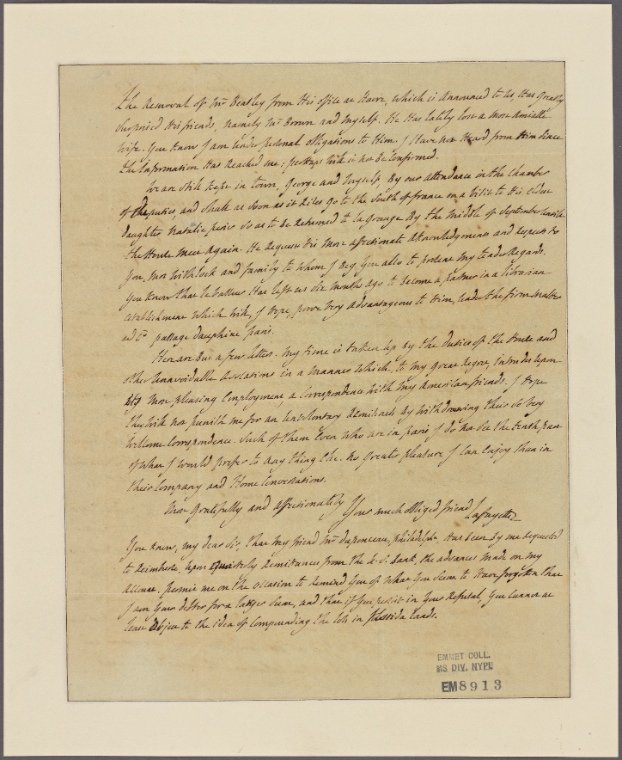 The Removal of Mr Beasley from His office at Havre, which is Announced to us, Has Greatly
Surprised His friends, namely Mr Brown and Myself. He Has lately lost a most Amiable
wife. You Know I am under personal obligations to Him. I Have not Heard from Him Since
the Information Has Reached me; perhaps will it not be Confirmed.
We are still Kept in town, George and Myself, By our attendance in the Chamber
of deputies, and shall as soon as it Rises go to the South of france on a Visit to His elder
daughter Natalie perier so as to be Returned to La Grange By the Middle of September until
the House meet Again. He Requests His most affectionate Acknowledgments and Respects to
You, and family to whom I Beg You also to present My tender Regards.
You Know that Le Vasseur Has left us six months ago to Become a partner in a librarian
establishment which will, I Hope, prove very Advantageous to Him, under the firm
passage dauphine paris.
Here are But a few letters. My time is taken up By the duties of the House and
other Unavoidable Avocations in a Manner which, to my Great Regret, Intrudes upon
its most pleasing Employment, a Correspondence with My American friends. I Hope
they will not punish me for an Involuntary Remissness By withdrawing their So Very
Wellcome Correspondence. Such of them Even who are in paris I do not See the tenth part
of what I would prefer to Any thing Else. No Greater pleasure I Can Enjoy than in
their Company and Home Conversations.
Most Gratefully and affectionately Your much obliged friend Lafayette
You Know, my dear Sir, that My friend Mr duponceau, philadelphia Has been by me Requested
to Reimburse, upon Quarterly Remittances from the U.S. Bank, the advances made on my
account. permit me on the occasion to Remind You of what You Seem to Have forgotten that
I am Your debtor for a larger Sum, and that if You persist in Your Refusal You Cannot at
least object to the idea of Compounding the lots in florida lands.
EMMET COLL.
MS DIV. NYPL
EM8913